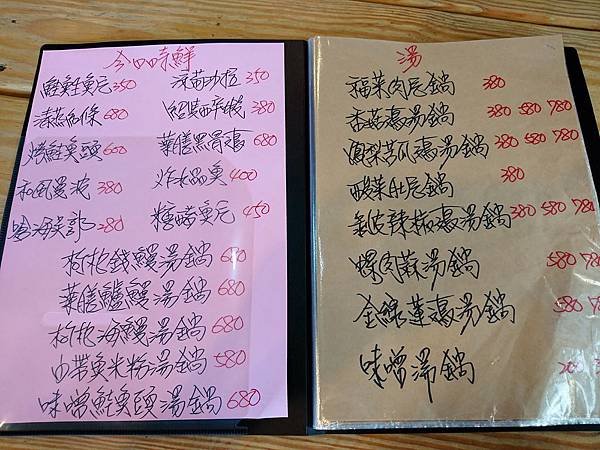 今日時鮮
鮭魚 350 涼筍沙拉 350
清蒸 680 紹興醉蝦 380
烤鮭魚頭 600 藥膳黑骨雞 680
和風 380 炸水晶魚 400
380 糖醋魚 450
枸杞錢鰻湯鍋 680
藥膳鱸鰻湯鍋 680
枸杞海鰻湯鍋 680
白帶魚米粉湯鍋 580
味噌鮭魚頭湯鍋 680
湯
福菜肉片鍋 380
香菇雞湯鍋 380 580 780
鳳梨苦瓜雞湯鍋 380 580 780
酸菜肚片鍋 380
剝皮辣椒雞湯鍋 380 580 780
湯鍋 580 780
金線蓮雞湯鍋 580 78
味噌湯鍋 200